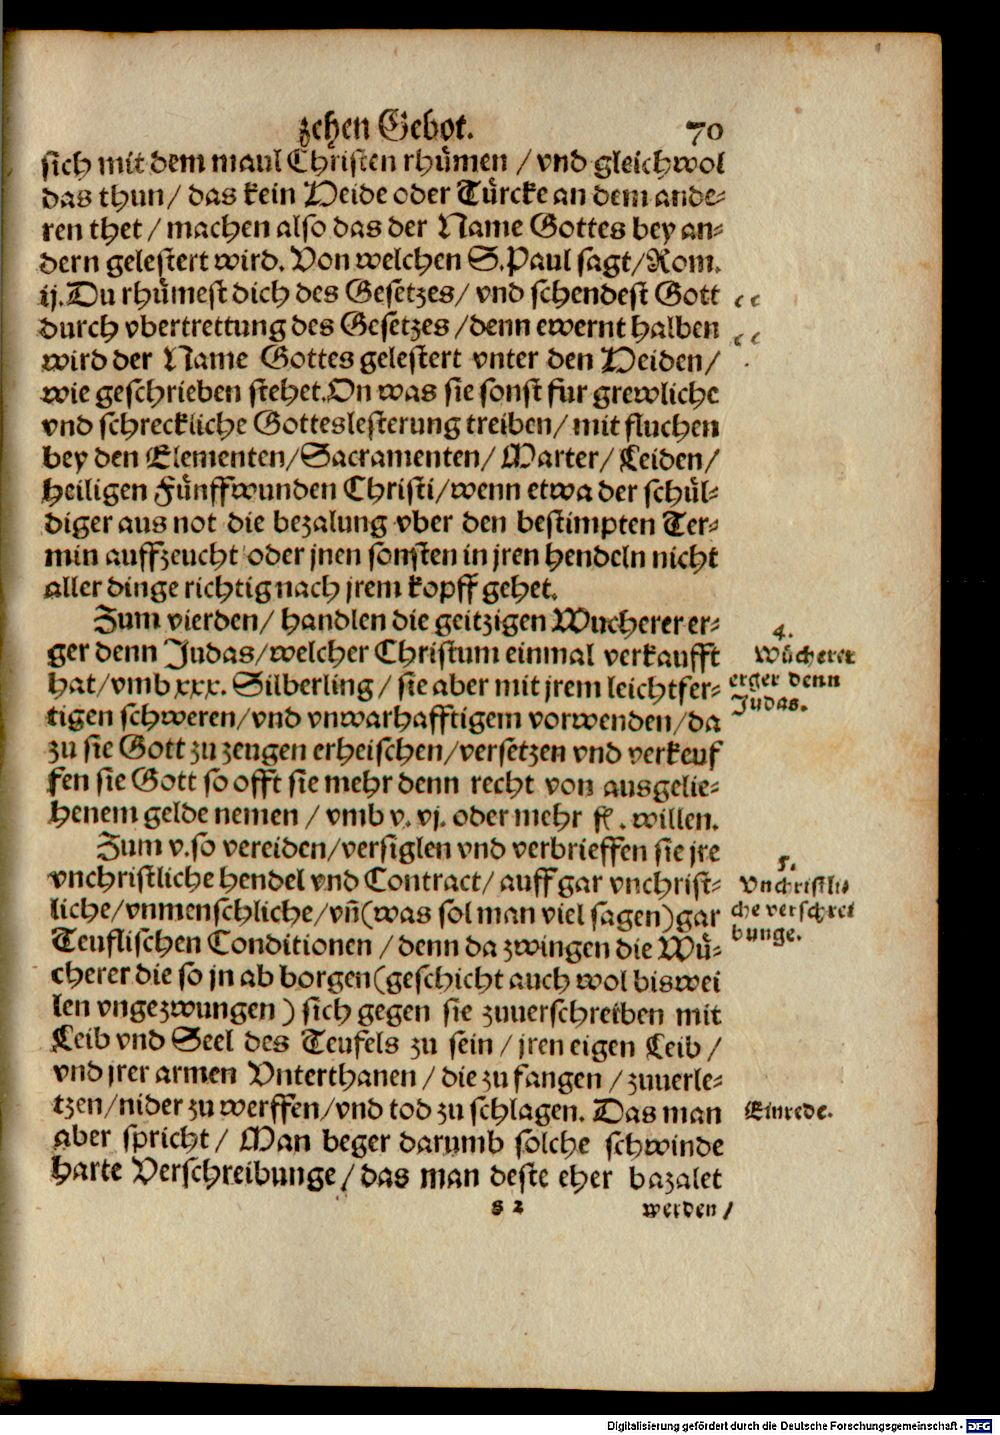 zehen Gebot. 70
sich mit dem maul Christen rhuͤmen / vnd gleichwol
das thun / das kein Heide oder Tuͤrcke an dem ande-
ren thet / machen also das der Name Gottes bey an-
dern gelestert wird. Von welchen S. Paul sagt / Rom.
ij. Du rhuͤmest dich des Gesetzes / vnd schendest Gott
durch vbertrettung des Gesetzes / denn ewernt halben
wird der Name Gottes gelestert vnter den Heiden /
wie geschrieben stehet. On was sie sonst fur grewliche
vnd schreckliche Gotteslesterung treiben / mit fluchen
bey den Elementen / Sacramenten / Marter / Leiden /
heiligen Fuͤnffwunden Christi / wenn etwa der schuͤl-
diger aus not die bezalung vber den bestimpten Ter-
min auffzeucht oder jnen sonsten in jren hendeln nicht
aller dinge richtig nach jrem kopff gehet.
Zum vierden / handlen die geitzigen Wucherer er-
ger denn Judas / welcher Christum einmal verkaufft
hat / vmb xxx. Silberling / sie aber mit jrem leichtfer-
tigen schweren / vnd vnwarhafftigem vorwenden / da
zu sie Gott zu zeugen erheischen / versetzen vnd verkeuf
fen sie Gott so offt sie mehr denn recht von ausgelie-
henem gelde nemen / vmb v. vj. oder mehr fl. willen.
Zum v. so vereiden / versiglen vnd verbrieffen sie jre
vnchristliche hendel vnd Contract / auff gar vnchrist-
liche / vnmenschliche / vn̄ (was sol man viel sagen) gar
Teuflischen Conditionen / denn da zwingen die Wuͤ-
cherer die so jn ab borgen (geschicht auch wol biswei
len vngezwungen) sich gegen sie zuuerschreiben mit
Leib vnd Seel des Teufels zu sein / jren eigen Leib /
vnd jrer armen Vnterthanen / die zu fangen / zuuerle-
tzen / nider zu werffen / vnd tod zu schlagen. Das man
aber spricht / Man beger darumb solche schwinde
harte Verschreibunge / das man deste eher bazalet
s 2 werden /
4.
Wuͤcherer
erger denn
Judas.
5.
Vnchristli-
che verschrei
bunge.
Einrede.
Digitalisierung gefördert durch die Deutsche Forschungsgemeinschaft - DFG